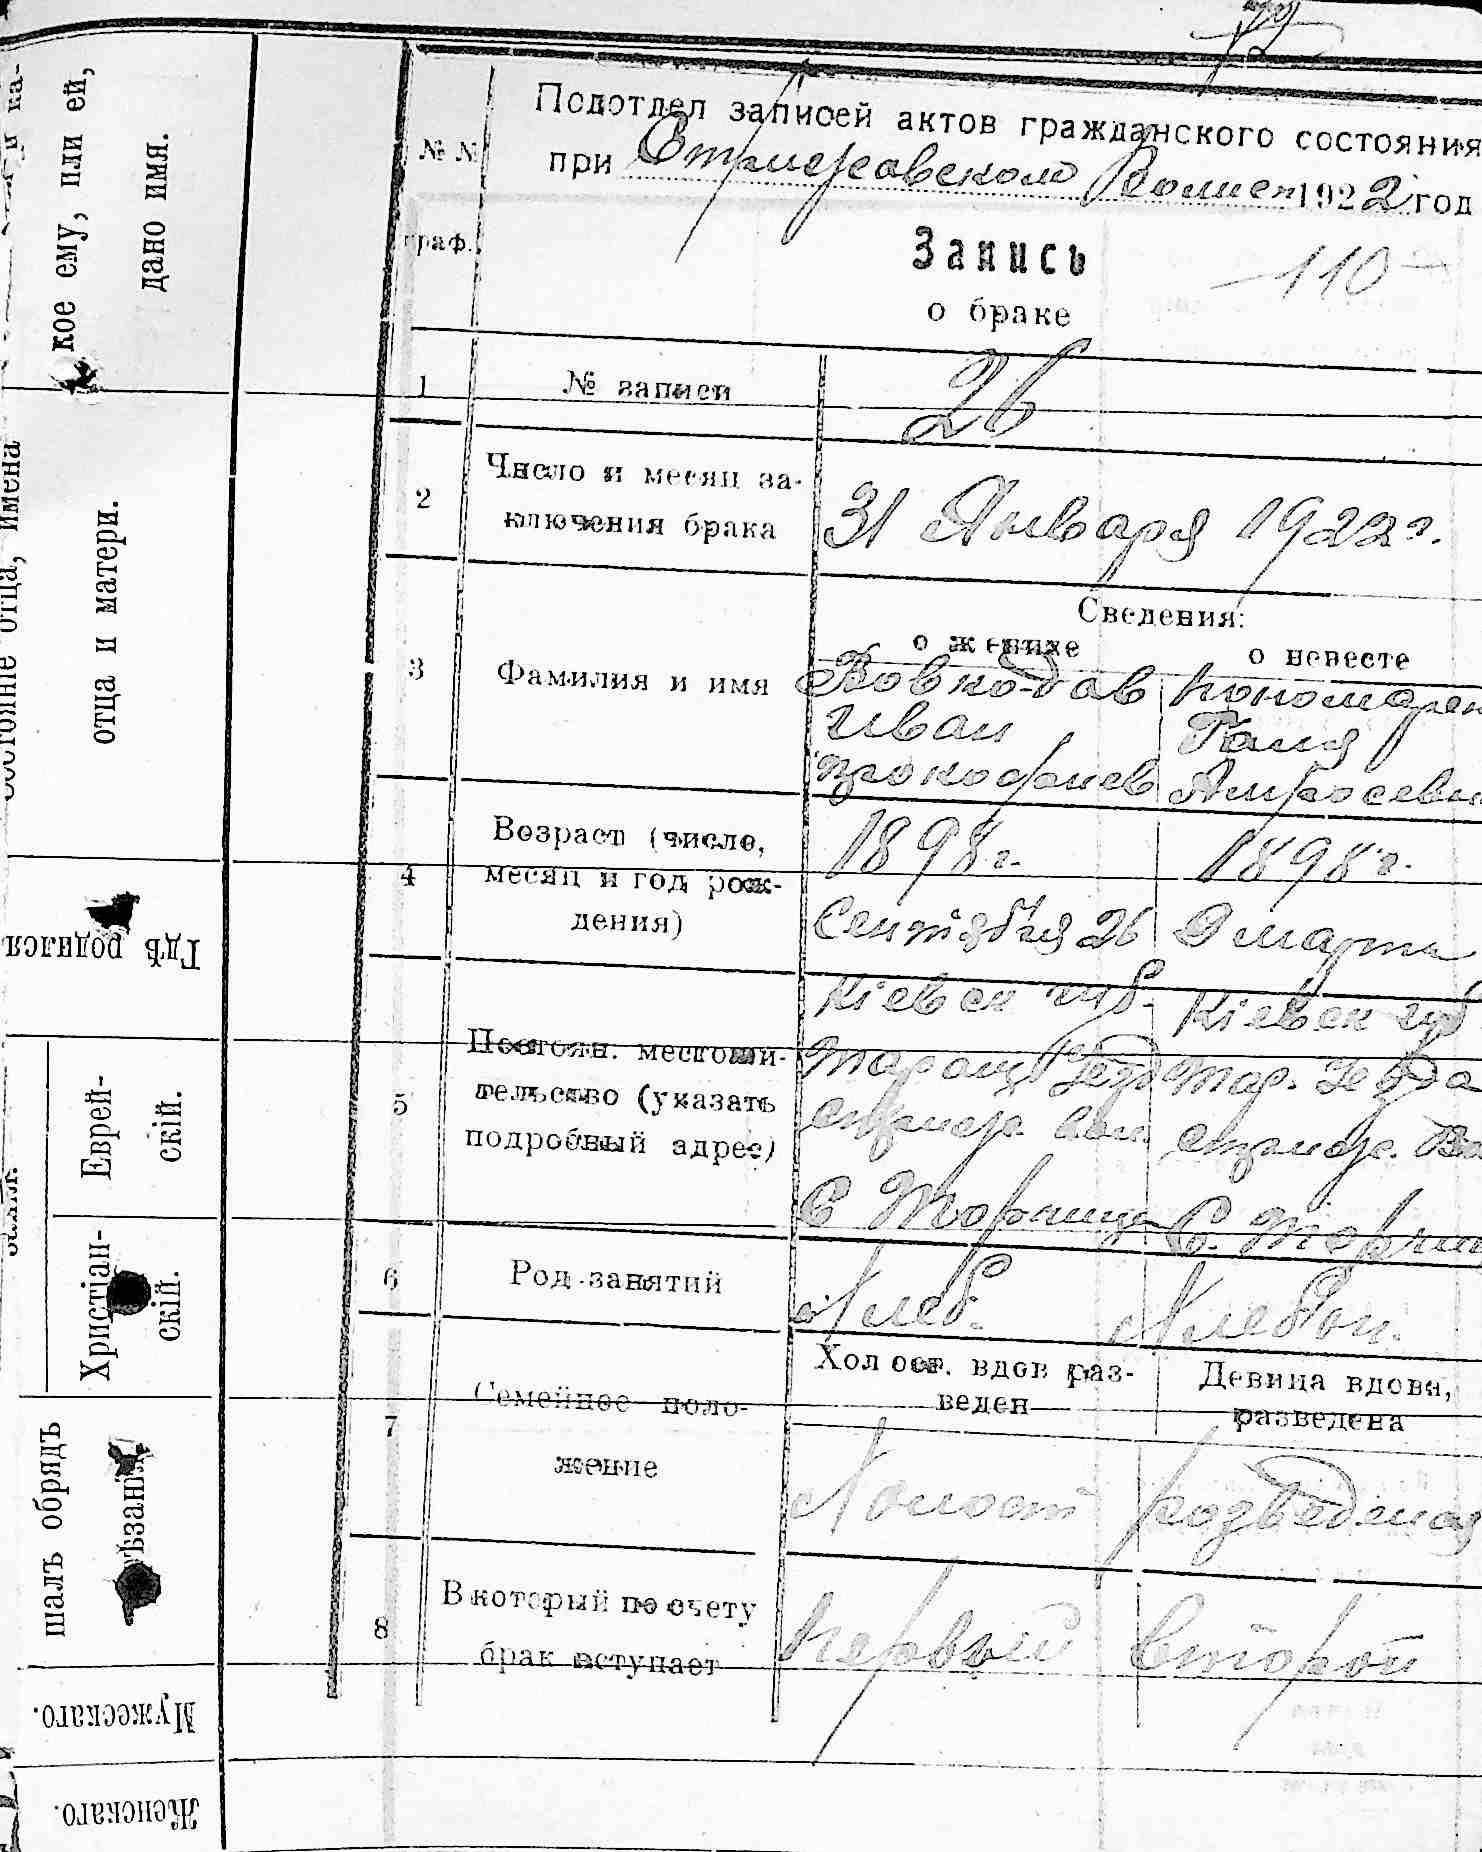 72
Подотдел записей актов гражданского состояния
при Стрижавском Волисп 1922 год
№ №
граф.
Запись
110
о браке
1 № записи 26
2 Число и месяц за-
ключения брака
31 Января 1922 г.
Сведения:
о женихе о невесте
3 Фамилия и имя
Вовкодав Пономарен
Иван Ганя
Прокофиев Амросевн
4 Возраст (число,
месяц и год рож-
дения)
1898 г. 1898 г.
Сентября 26 9 марта
5 Постоян. местожи-
тельство (указать
подробный адрес)
Кіевск губ. Кіевск губ
Таращ Уезд Тар. Уезда
стриж. вол. стриж. Во
С Торчица С. Торчиц
6 Род занятий
Хлеб. Хлебоп.
7 Семейное поло-
жение
Холост. вдов раз-
веден
Девица вдова,
разведена
Холост разведеная
8 В который по счету
брак вступает
первый второй
кое ему, или ей,
дано имя.
состояние отца, имена
отца и матери.
Гдѣ родился
Еврей-
скій.
Христіан-
скій.
шалъ обрядъ
Мужескаго.
Женскаго.